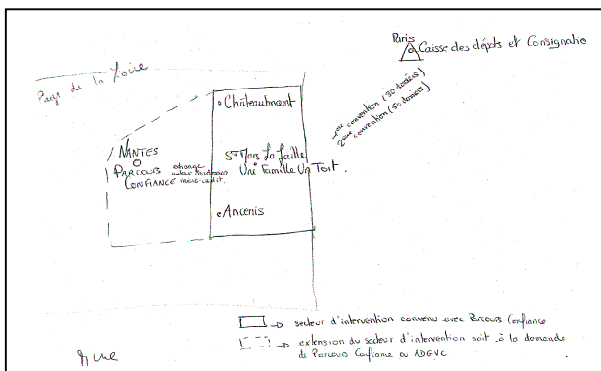 Paris
Caisse des dépôts et Consignatio
Pays de la Loire
1ère convention (30 dossiers)
2ème convention (50 dossiers)
Châteaubriant
NANTES
PARCOURS
CONFIANCE
échange
micro-crédit.
St Mars la Jaille
Une Famille Un Toit.
Ancenis
→ secteur d'intervention convenu avec Parcours Confiance
→ extension du secteur d'intervention soit à la demande
de Parcours Confiance ou ADGVC